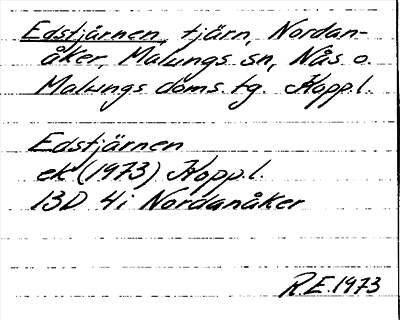 Edstjärnen, tjärn, Nordan-
åker, Malungs sn, Nås o.
Malungs doms.tg. Kopp.l.
Edstjärnen
ek (1973) Kopp.l.
13D 4i Nordanåker
R.E. 1973